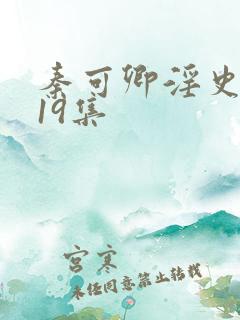 秦可卿淫史
19集
宫寒
未经同意禁止转载